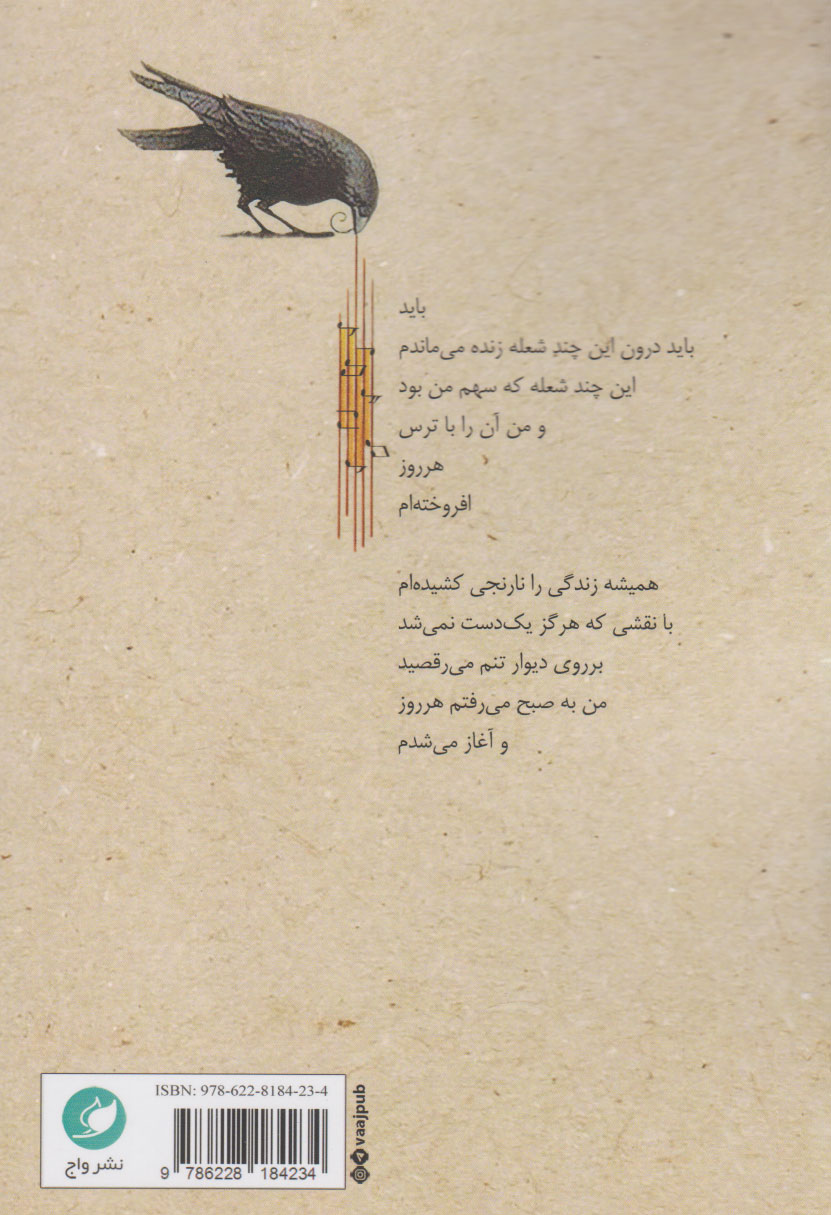 باید
باید درون این چند شعله زنده می‌ماندم
این چند شعله که سهم من بود
و من آن را با ترس
هرروز
افروخته‌ام
همیشه زندگی را نارنجی کشیده‌ام
با نقشی که هرگز یک‌دست نمی‌شد
برروی دیوار تنم می‌رقصید
من به صبح می‌رفتم هرروز
و آغاز می‌شدم
ISBN: 978-622-8184-23-4
9 786228 184234
نشر واج
vaajpub